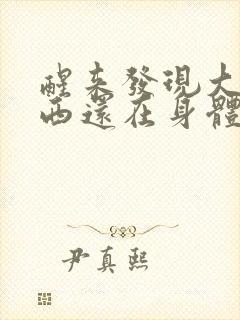 醒来發現大
西還在身體
尹真熙